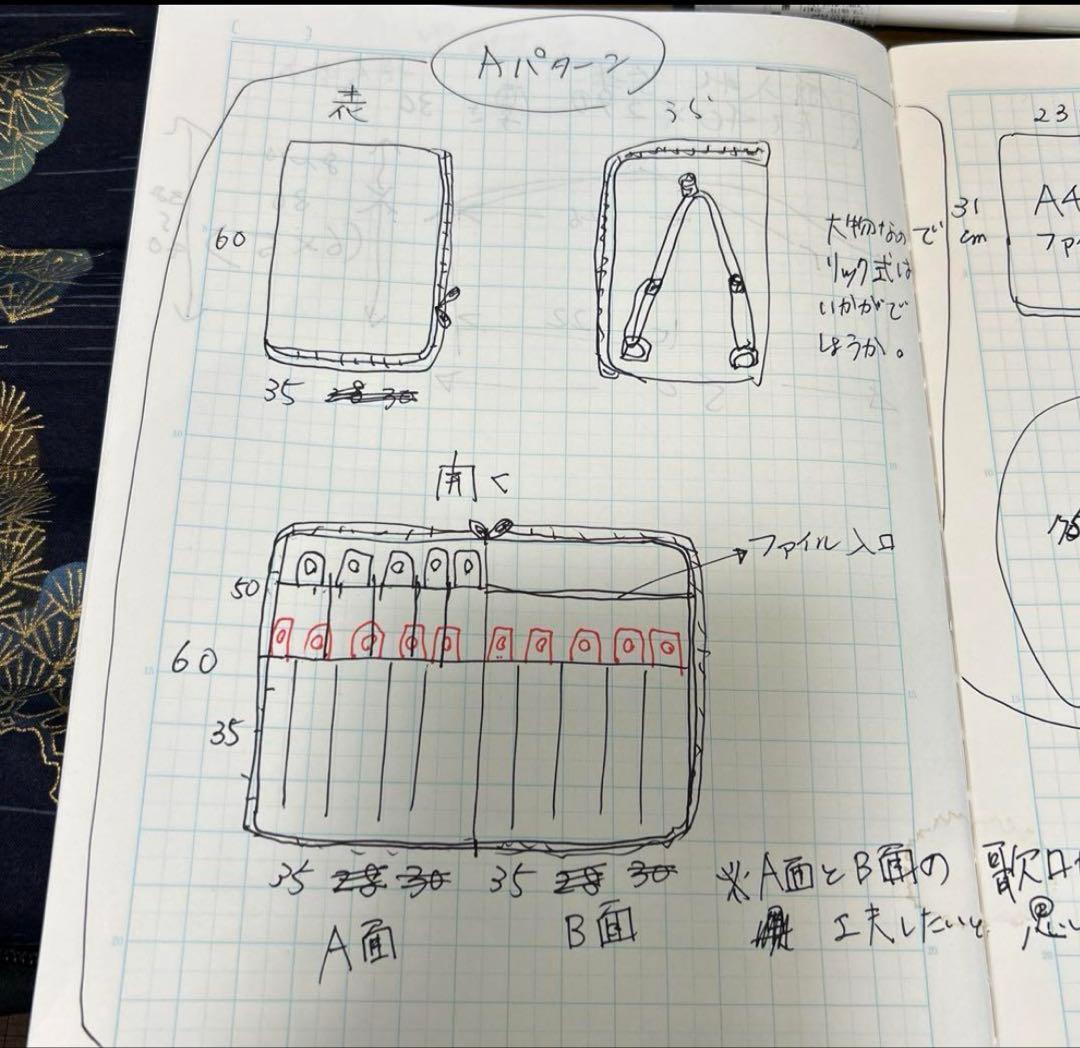 Aパターン
表
うら
60
35
大物なので
リック式は
いかがで
しょうか。
開く
ファイル入口
50
60
35
35 35
A面 B面
※A面とB面の 歌口
工夫したいと 思い
23
31
cm
A4